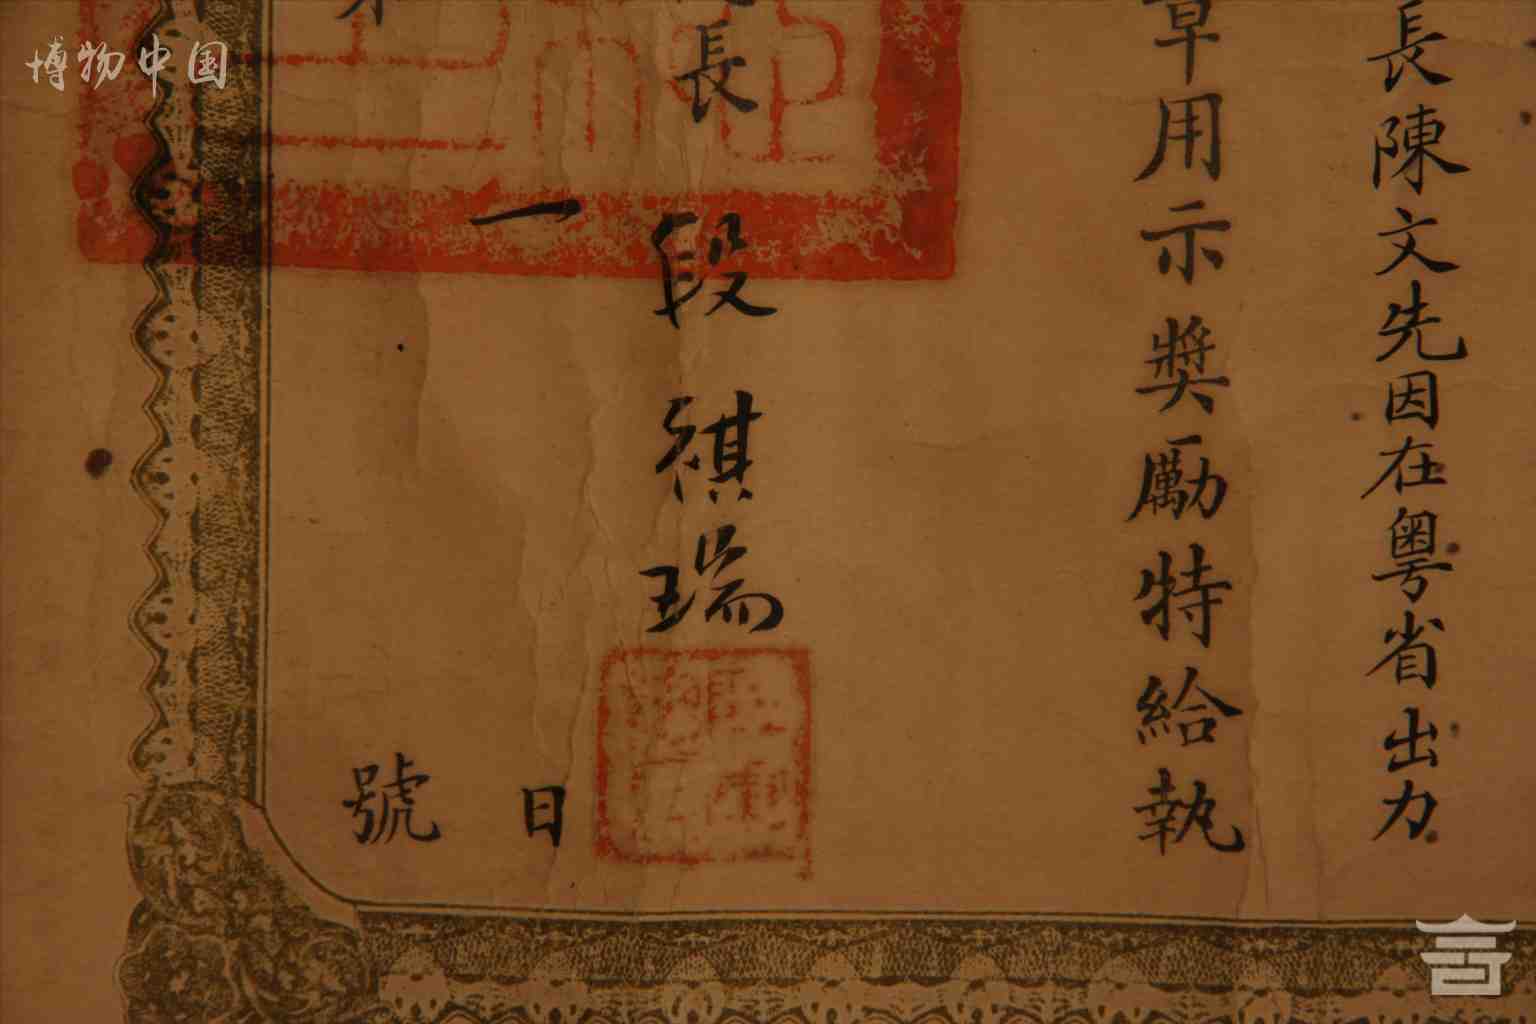 博物中国
長陳文先因在粤省出力
章用示獎勵特給執
長 段祺瑞
一 日
號